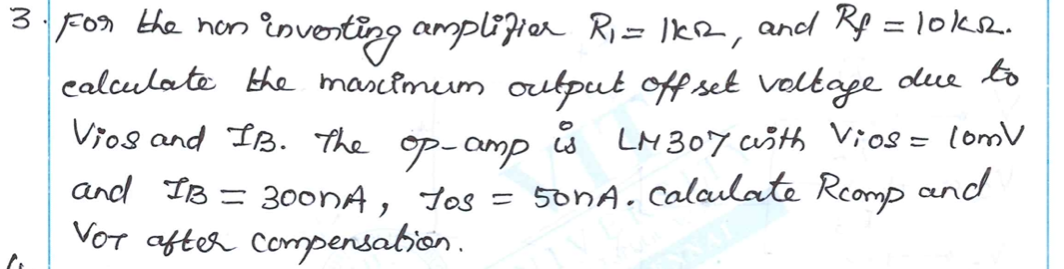 3. For the non inverting amplifier R1 = 1kΩ, and Rf = 10kΩ.
calculate the maximum output offset voltage due to
Vios and IB. The op-amp is LM307 with Vios = 10mV
and IB = 300nA, Ios = 50nA. Calculate Rcomp and
VOT after compensation.